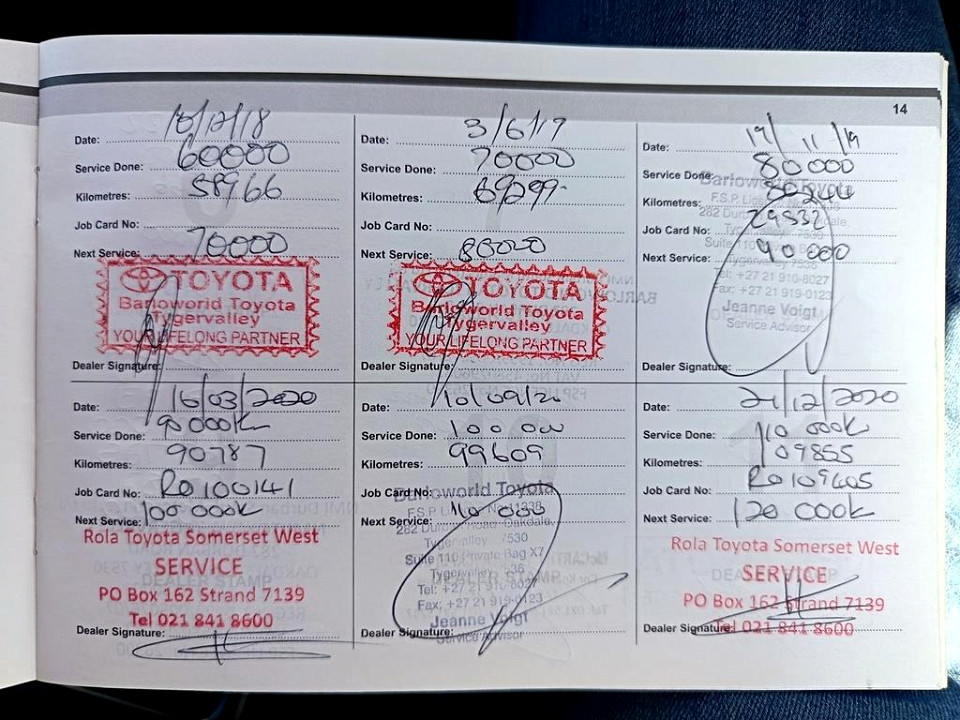 14
Date: 10/12/18
Service Done: 60000
Kilometres: 58966
Job Card No:
Next Service: 70000
TOYOTA
Barloworld Toyota
Tygervalley
YOUR LIFELONG PARTNER
Dealer Signature:
Date: 3/6/19
Service Done: 70000
Kilometres: 69299
Job Card No:
Next Service: 80000
TOYOTA
Barloworld Toyota
Tygervalley
YOUR LIFELONG PARTNER
Dealer Signature:
Date: 19/11/19
Service Done: 80000
Barloworld Toyota
Kilometres: 80244
Job Card No: 29532
Next Service: 90000
Tel: +27 21 910-8027
Fax: +27 21 919-0123
Jeanne Voigt
Service Advisor
Dealer Signature:
Date: 16/03/2020
Service Done: 90 000k
Kilometres: 90787
Job Card No: Ro100141
Next Service: 100 000k
Rola Toyota Somerset West
SERVICE
PO Box 162 Strand 7139
Tel 021 841 8600
Dealer Signature:
Date: 10/09/20
Service Done: 100 000
Kilometres: 99609
Job Card No:
Barloworld Toyota
Next Service: 110 000
282 Durban Road Oakdale
Tygervalley 7530
Suite 110 Private Bag X7
Tygervalley 7536
Tel: +27 21 910-8027
Fax: +27 21 919-0123
Jeanne Voigt
Service Advisor
Dealer Signature:
Date: 21/12/2020
Service Done: 110 000k
Kilometres: 109855
Job Card No: Ro109405
Next Service: 120 000k
Rola Toyota Somerset West
SERVICE
PO Box 162 Strand 7139
Tel 021 841 8600
Dealer Signature: